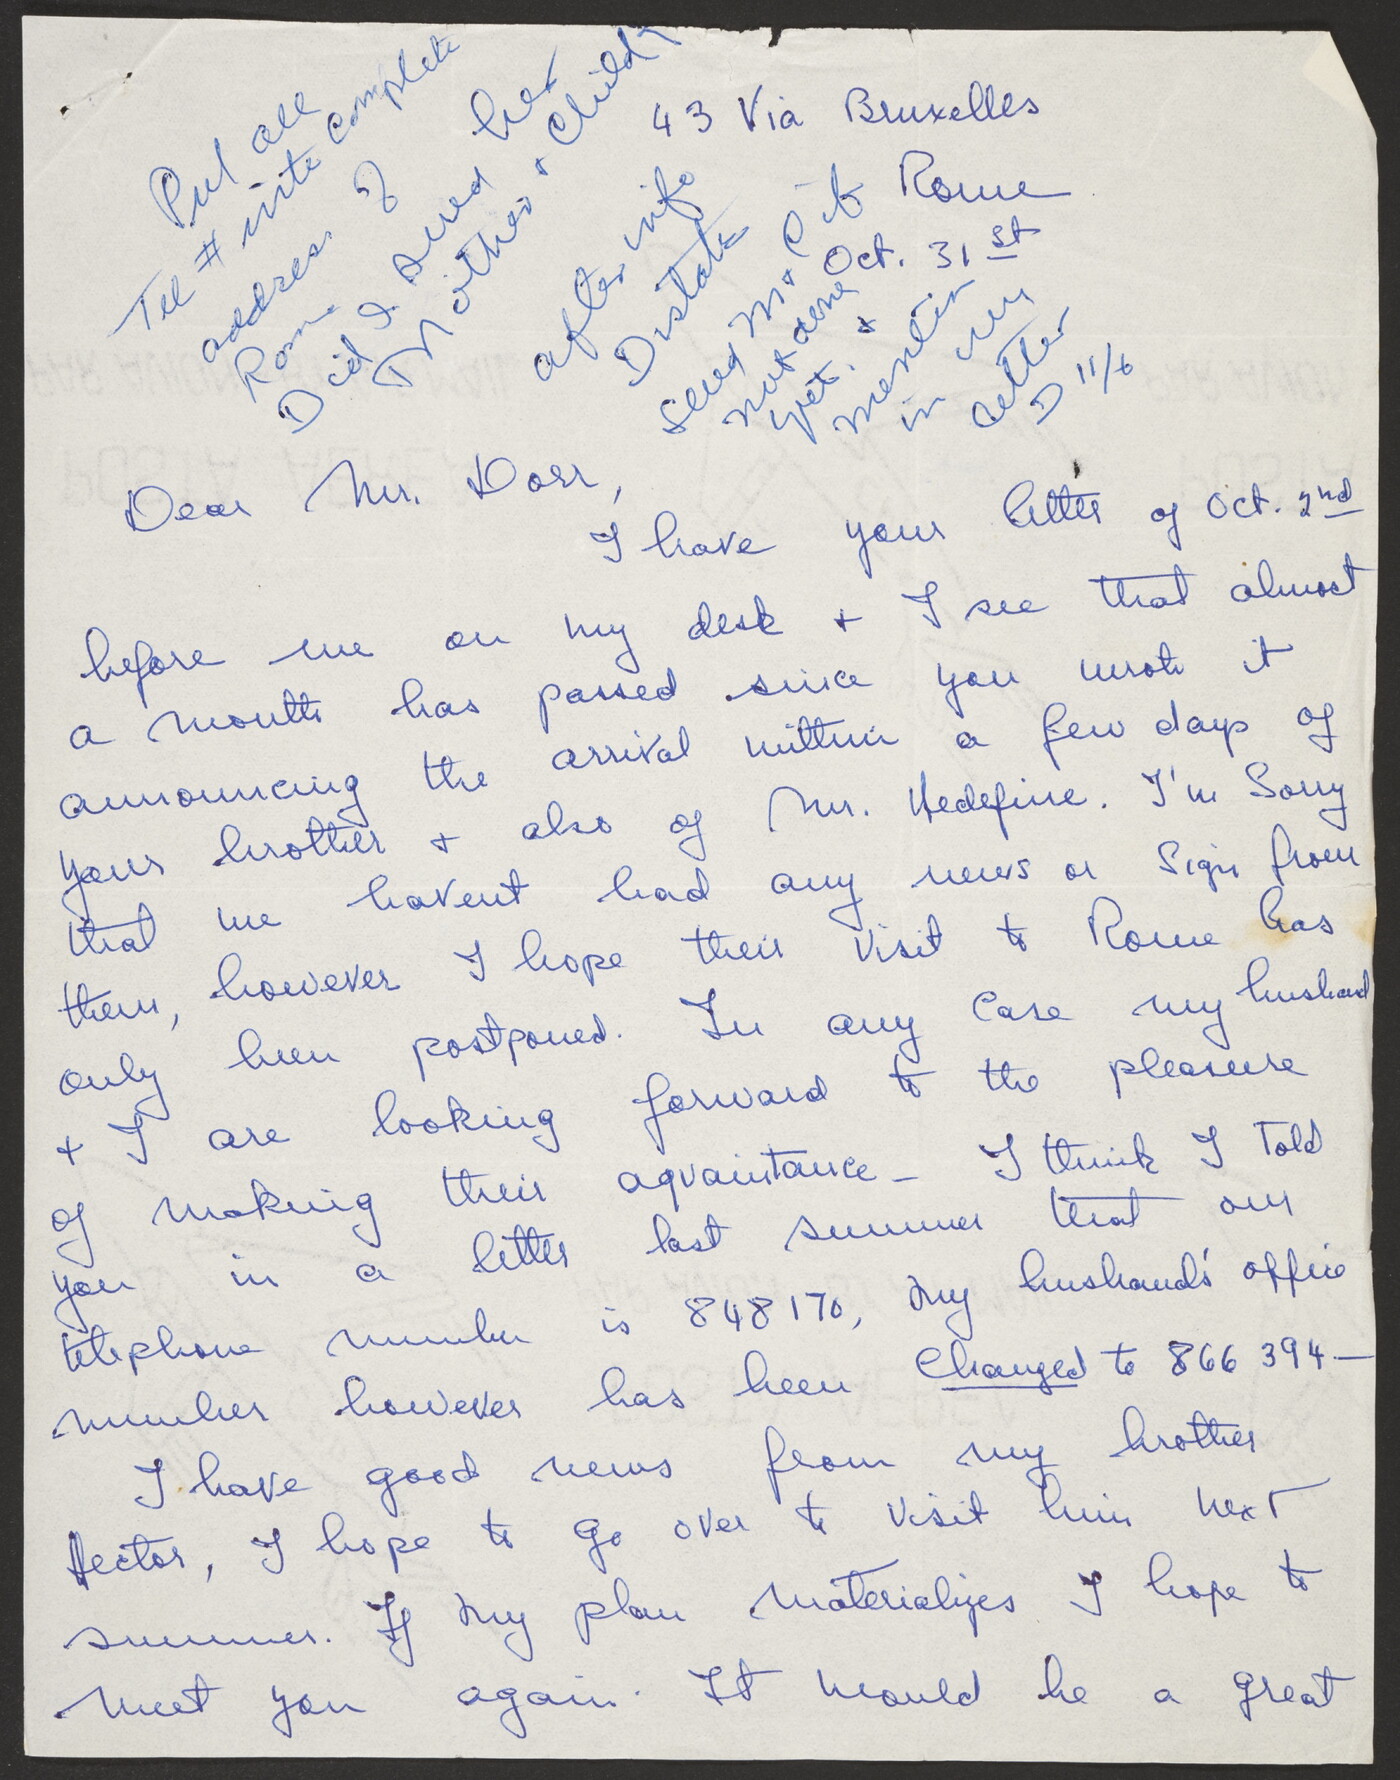 Put all
Tel # into complete
address of her
Rome
Did I send
Mother + Child?
after info
Dictate
send
not done
yet. +
mention
in my
letter
D 11/6
43 Via Bruxelles
Rome
Oct. 31st
Dear Mr. Dorr,
I have your letter of Oct. 2nd
before me on my desk + I see that almost
a month has passed since you wrote it
announcing the arrival within a few days of
your brother + also of Mr. Hedefine. I'm Sorry
that we havent had any news or Sign from
them, however I hope their visit to Rome has
only been postponed. In any case my husband
+ I are looking forward to the pleasure
of making their aqvaintance - I think I Told
you in a letter last summer that our
telephone number is 848170, my husband's office
number however has been changed to 866 394 -
I have good news from my brother
Hector, I hope to go over to visit him next
summer. If my plan materializes I hope to
meet you again. It would be a great